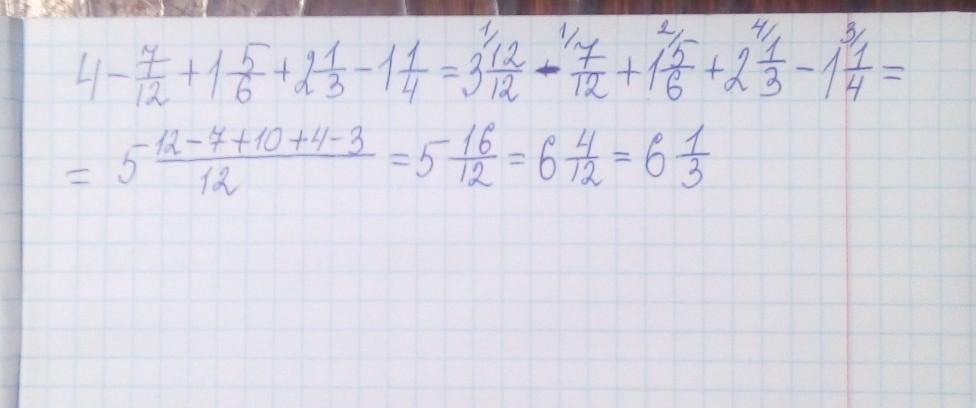 4 - 7/12 + 1 5/6 + 2 1/3 - 1 1/4 = 3 12/12 - 7/12 + 1 5/6 + 2 1/3 - 1 1/4 =
= 5 (12-7+10+4-3)/12 = 5 16/12 = 6 4/12 = 6 1/3